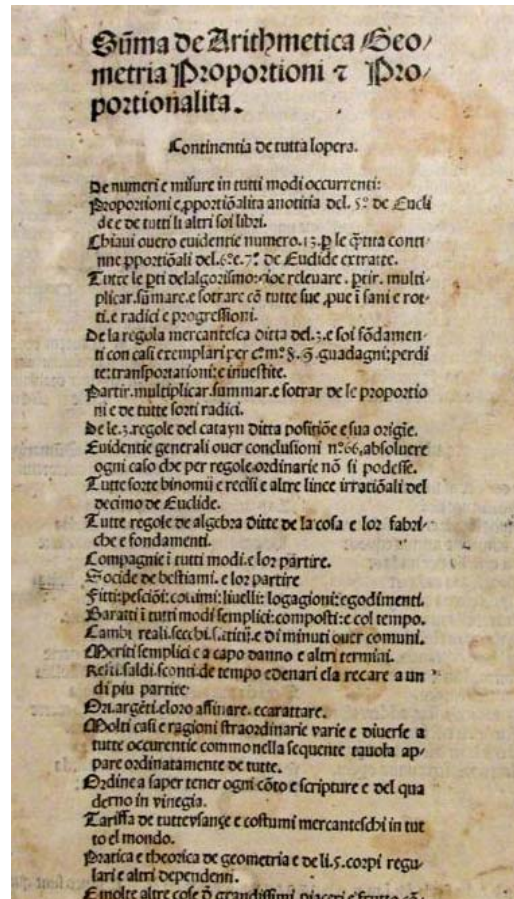 Sūma de Arithmetica Geo/
metria Proportioni ⁊ Pro/
portionalita.
Continentia de tutta lopera.
De numeri e misure in tutti modi occurrenti:
Proportioni e ꝓportiōalita anotitia del. 5º. de Eucli
de e de tutti li altri soi libri.
Chiaui ouero euidentie numero. 13. ꝑ le q̄tita conti-
nue ꝓportiōali del. 6º. e. 7º. de Euclide extratte.
Tutte le ꝑti delalgorismo: cioe releuare. ꝑtir. multi-
plicar. sūmare. e sotrare cō tutte sue ꝓue ī sani e rot-
ti. e radici e progressioni.
De la regola mercantesca ditta del. 3. e soi fōdamen-
ti con casi exemplari per guadagni: perdi
te: transportationi: e inuestite.
Partir. multiplicar. summar. e sotrar de le proportio
ni e de tutte sorti radici.
De le. 3. regole del catayn ditta positiōe e sua origīe.
Euidentie generali ouer conclusioni nº 66. absoluere
ogni caso che per regole ordinarie nō si podesse.
Tutte sorte binomii e recisi e altre linee irratiōali del
decimo de Euclide.
Tutte regole de algebra ditte de la cosa e lor fabri-
che e fondamenti.
Compagnie ī tutti modi. e lor partire.
Socide de bestiami. e lor partire
Fitti: pesciōi: cottimi: liuelli: logagioni: e godimenti.
Baratti ī tutti modi semplici: composti: e col tempo.
Cambi reali. secchi. fittitii. e diminuti ouer comuni.
Meriti semplici e a capo danno e altri termini.
Resti. saldi. sconti. de tempo e denari e la recare a un
di piu partite
Ori. argēti. e loro affinare. e carattare.
Molti casi e ragioni straordinarie varie e diuerse a
tutte occurentie commo nella sequente tauola ap-
pare ordinatamente de tutte.
Ordine a saper tener ogni cōto e scripture e del qua
derno in vinegia.
Tariffa de tutte vsançe e costumi mercanteschi in tut
to el mondo.
Pratica e theorica de geometria e de li. 5. corpi regu-
lari e altri dependenti.
E molte altre cose d̄ grandissimi piaceri e frutto cō-